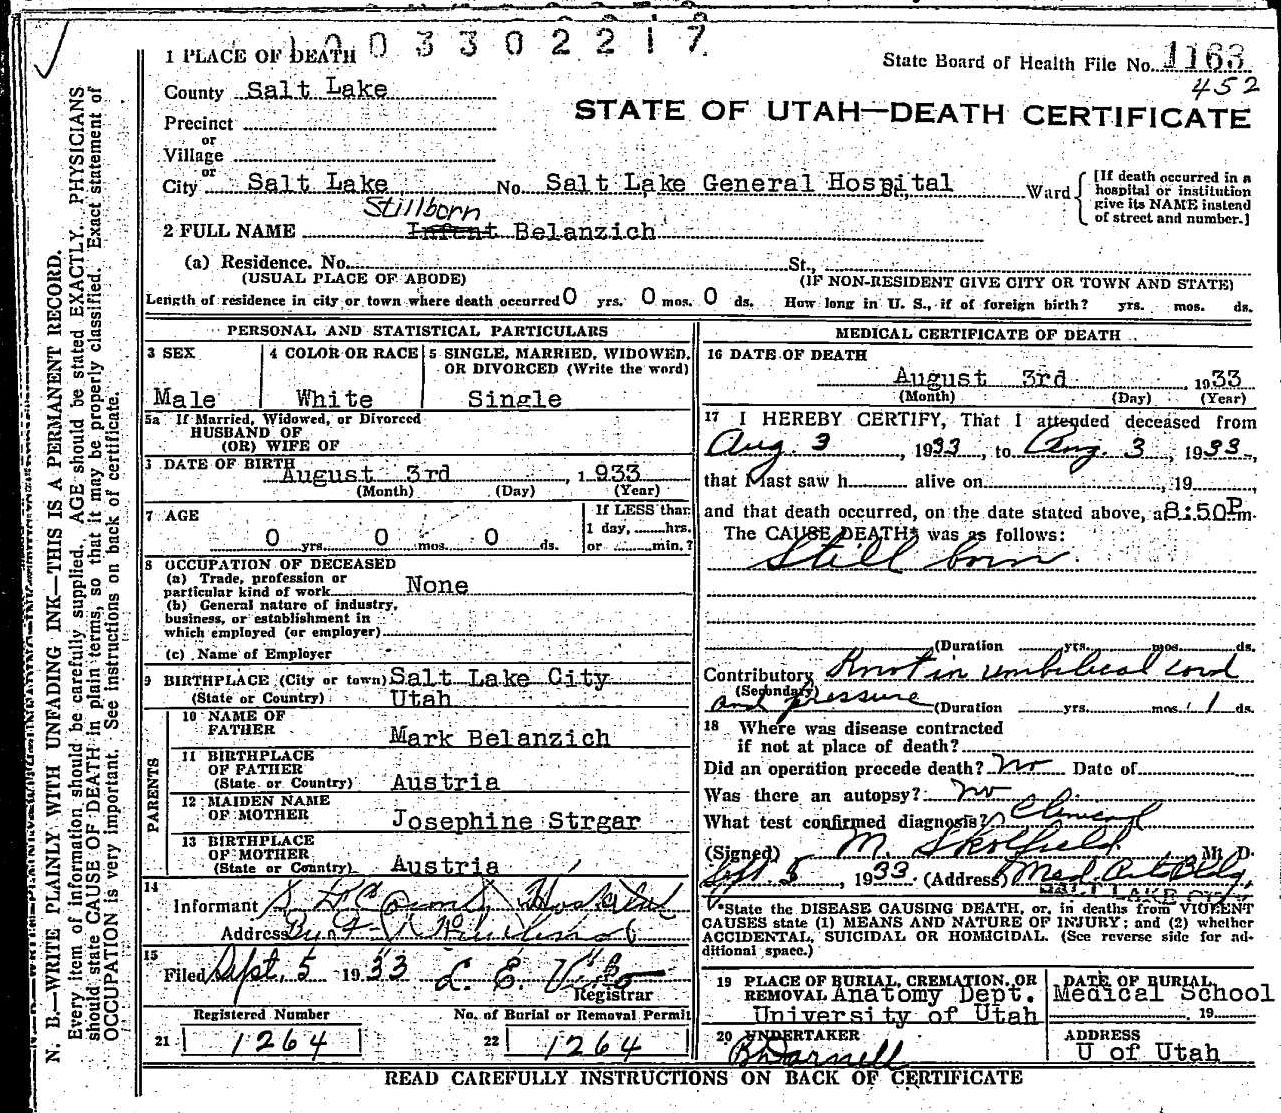 1003302217
1 PLACE OF DEATH
State Board of Health File No. 1163
452
County Salt Lake
STATE OF UTAH—DEATH CERTIFICATE
Precinct
or
Village
or
City Salt Lake No. Salt Lake General Hospital St., Ward
[If death occurred in a hospital or institution give its NAME instead of street and number.]
Stillborn
2 FULL NAME Infant Belanzich
(a) Residence. No. St.,
(USUAL PLACE OF ABODE) (IF NON-RESIDENT GIVE CITY OR TOWN AND STATE)
Length of residence in city or town where death occurred 0 yrs. 0 mos. 0 ds. How long in U. S., if of foreign birth? yrs. mos. ds.
PERSONAL AND STATISTICAL PARTICULARS
3 SEX 4 COLOR OR RACE 5 SINGLE, MARRIED, WIDOWED, OR DIVORCED (Write the word)
Male White Single
5a If Married, Widowed, or Divorced
HUSBAND OF
(OR) WIFE OF
DATE OF BIRTH
August 3rd, 1933
(Month) (Day) (Year)
7 AGE If LESS than
1 day, hrs.
0 yrs. 0 mos. 0 ds. or min.?
8 OCCUPATION OF DECEASED
(a) Trade, profession or
particular kind of work None
(b) General nature of industry,
business, or establishment in
which employed (or employer)
(c) Name of Employer
9 BIRTHPLACE (City or town) Salt Lake City
(State or Country) Utah
PARENTS
10 NAME OF
FATHER Mark Belanzich
11 BIRTHPLACE
OF FATHER
(State or Country) Austria
12 MAIDEN NAME
OF MOTHER Josephine Strgar
13 BIRTHPLACE
OF MOTHER
(State or Country) Austria
14
Informant S L County Hospital
Address By
15
Filed Sept. 5 1933 L. E.
Registrar
Registered Number No. of Burial or Removal Permit
21 1264 22 1264
MEDICAL CERTIFICATE OF DEATH
16 DATE OF DEATH
August 3rd 1933
(Month) (Day) (Year)
17 I HEREBY CERTIFY, That I attended deceased from
Aug. 3, 1933, to Aug. 3, 1933,
that I last saw h alive on , 19
and that death occurred, on the date stated above, at 8:50P m.
The CAUSE DEATH* was as follows:
Still born
(Duration yrs. mos. ds.
Contributory Knot in umbilical cord
(Secondary)
and pressure (Duration yrs. mos. 1 ds.
18 Where was disease contracted
if not at place of death?
Did an operation precede death? No Date of
Was there an autopsy? No
What test confirmed diagnosis? Clinical
(Signed) M. Skolfield M. D.
Sept. 5, 1933. (Address) Med. Art Bldg.
SALT LAKE CITY
*State the DISEASE CAUSING DEATH, or, in deaths from VIOLENT
CAUSES state (1) MEANS AND NATURE OF INJURY; and (2) whether
ACCIDENTAL, SUICIDAL OR HOMICIDAL. (See reverse side for ad-
ditional space.)
19 PLACE OF BURIAL, CREMATION, OR DATE OF BURIAL
REMOVAL Anatomy Dept. Medical School
University of Utah 19
20 UNDERTAKER ADDRESS
Darnell U of Utah
READ CAREFULLY INSTRUCTIONS ON BACK OF CERTIFICATE
N. B.—WRITE PLAINLY WITH UNFADING INK—THIS IS A PERMANENT RECORD.
Every item of information should be carefully supplied. AGE should be stated EXACTLY. PHYSICIANS
should state CAUSE OF DEATH in plain terms, so that it may be properly classified. Exact statement of
OCCUPATION is very important. See instructions on back of certificate.